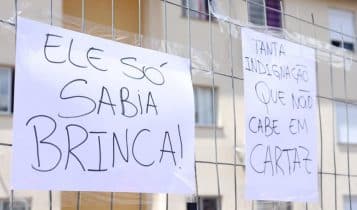 ELE SÓ
SABIA
BRINCA!
TANTA
INDIGNAÇÃO
QUE NÃO
CABE EM
CARTAZ